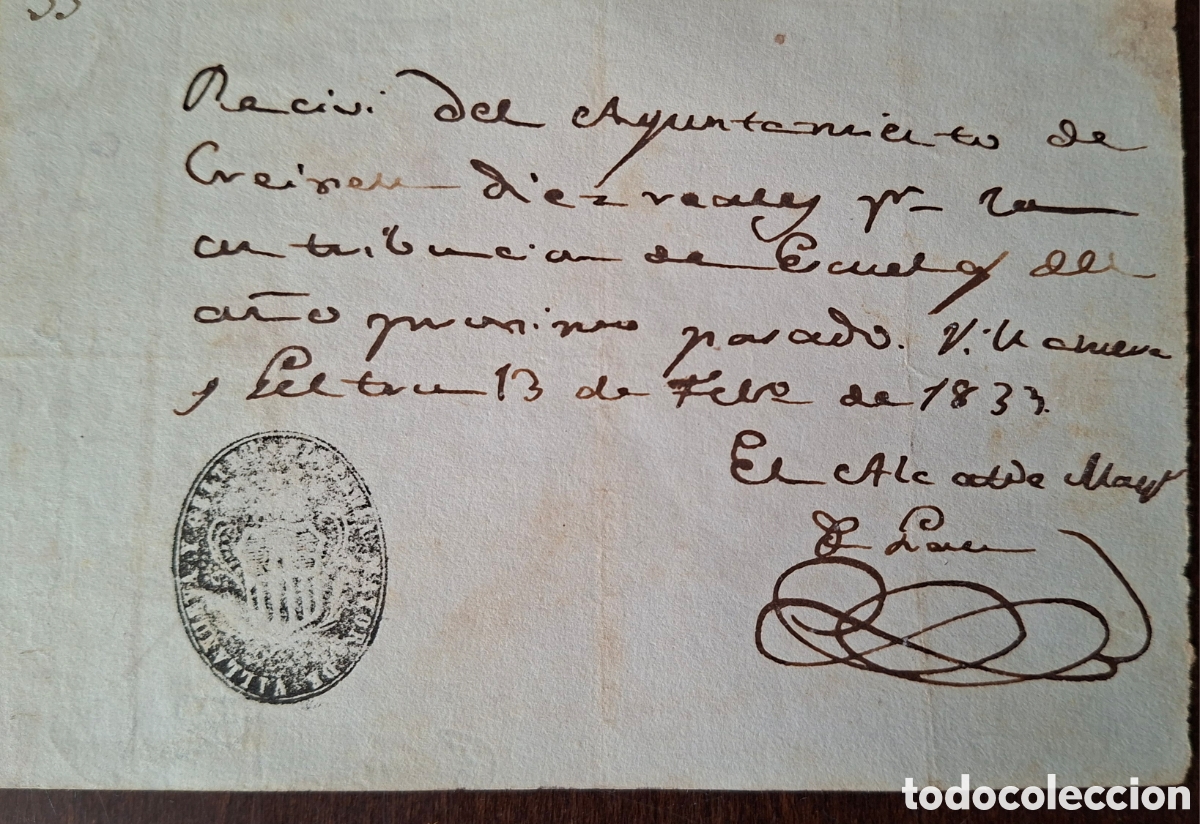 33
Recivi del Ayuntamiento de
Creixell diez reales pr. la
contribucion de Escuelas del
año proximo pasado. Villanueva
y Geltru 13 de Febo de 1833.
El Alcalde Mayr
DE VILLANUEVA
todocoleccion